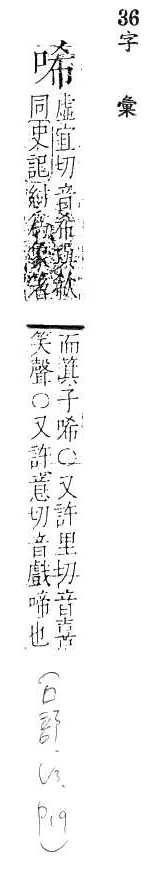 36字彙
唏
虛宜切音希與欷
同史記紂為象箸
而箕子唏○又許里切音喜
笑聲○又許意切音戲啼也
(口部,
p19)